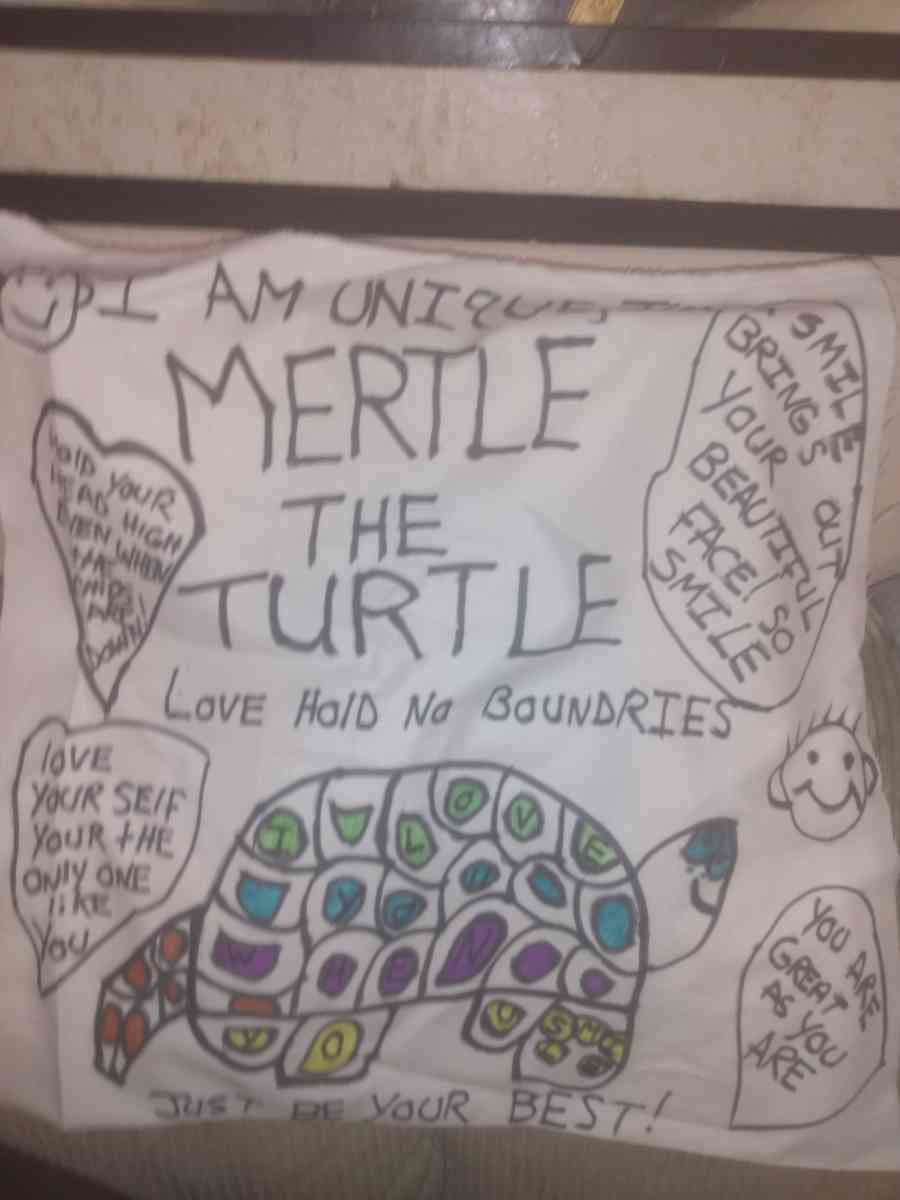 I AM UNIQUE
MERTLE
THE
TURTLE
LOVE HOlD NO BOUNDRIES
HOlD YOUR
HEAD HIGH
EVEN WHEN
THE
CHIPS
ARE
DOWN!
SMILE
BRINGS OUT
YOUR
BEAUTIFUL
FACE! SO
SMILE
lOVE
YOUR SElF
YOUR tHE
ONlY ONE
liKE
YOU
YOU ARE
GREAT
AS YOU
ARE
I LOVE
YOU
WHEN
YOU SMILE
JUST BE YOUR BEST!